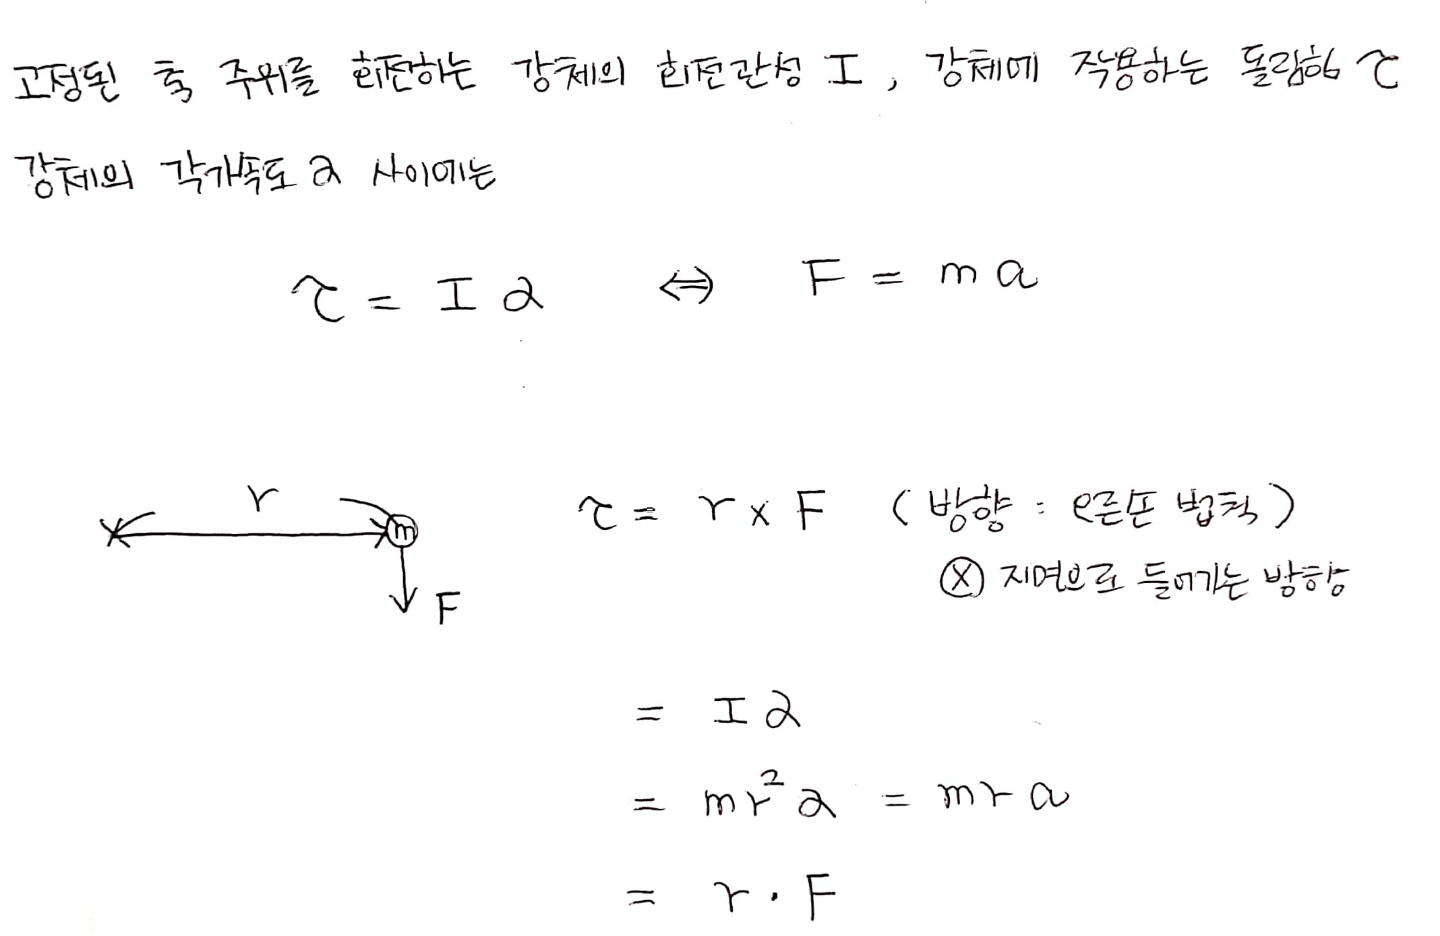 고정된 축 주위를 회전하는 강체의 회전관성 I, 강체에 작용하는 돌림힘 τ
강체의 각가속도 α 사이에는
τ = I α ⇔ F = m a
r
m
F
τ = r × F (방향 : 오른손 법칙)
ⓧ 지면으로 들어가는 방향
= I α
= mr²α = mr a
= r · F